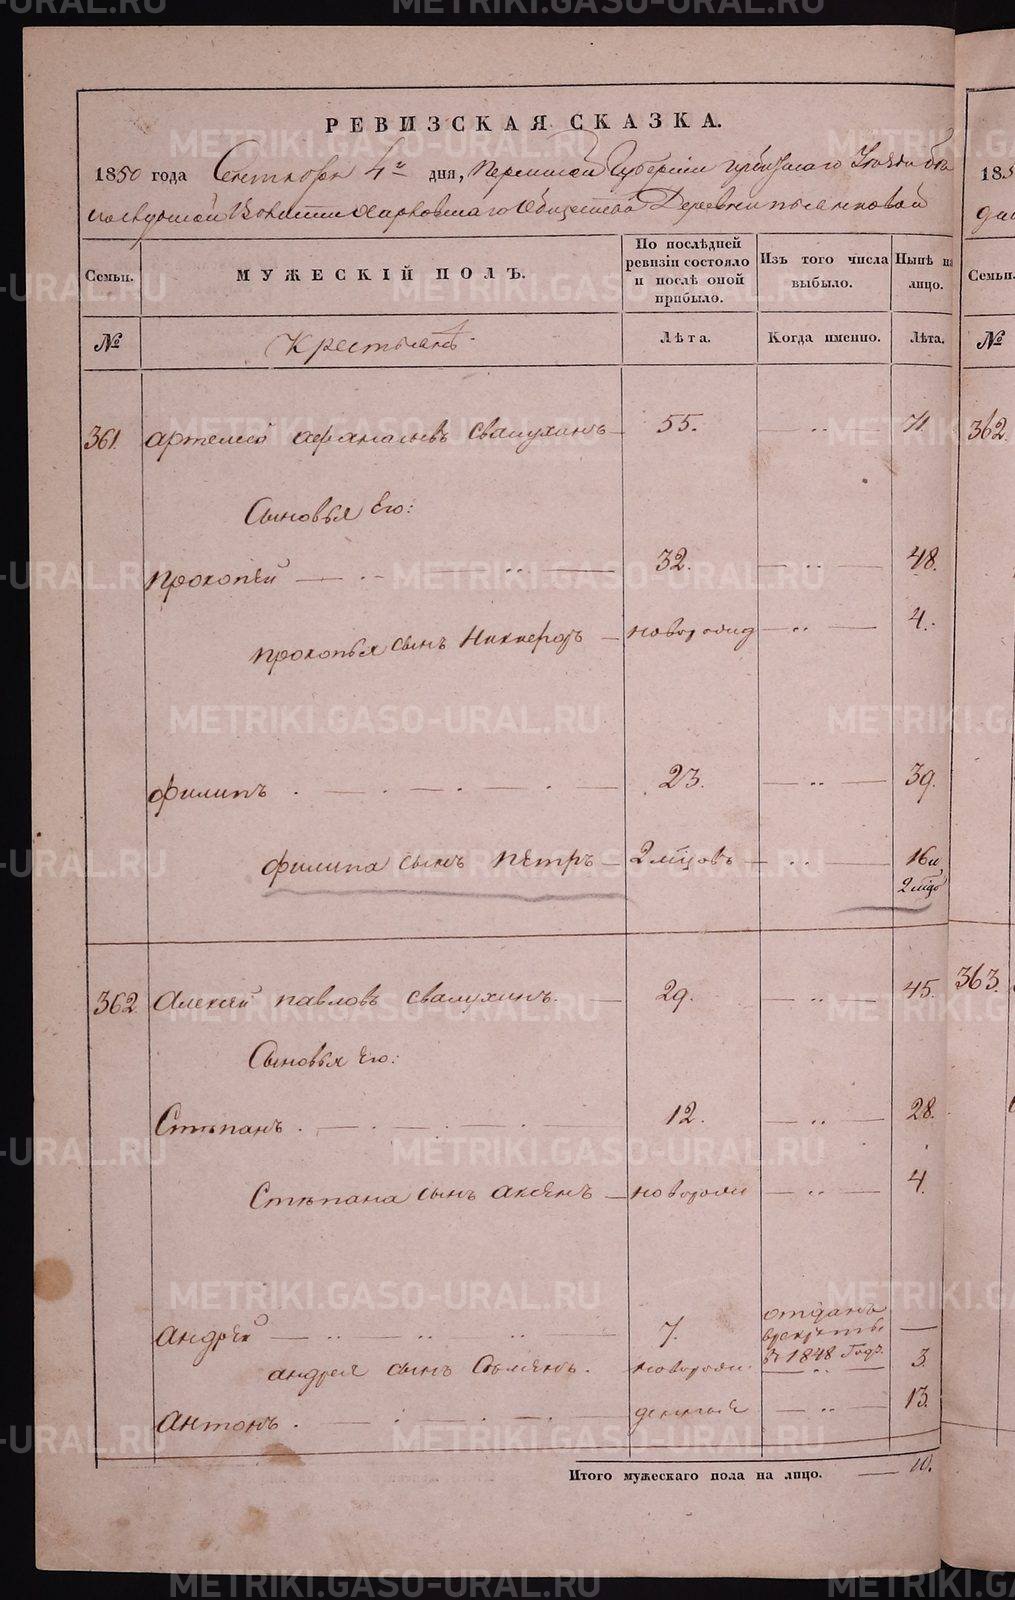 METRIKI.GASO-URAL.RU
РЕВИЗСКАЯ СКАЗКА.
1850 года Сентября 4го дня, Пермской Губернiи Ирбитскаго Уѣзда
Волости Харловскаго Общества Деревни
Семьи. МУЖЕСКIЙ ПОЛЪ. По послѣдней ревизiи состояло и послѣ оной прибыло. Изъ того числа выбыло. Нынѣ на лицо.
№ Крестьянъ. Лѣта. Когда именно. Лѣта.
361. Артемей Афанасьевъ Свалухинъ 55. — „ — 71.
Сыновья Его:
Прокопей 32. — „ — 48.
Прокопья сынъ Никифоръ новорожд — „ — 4.
Филипъ 23. — „ — 39.
Филипа сынъ Петръ 2 мѣцовъ — „ — 16 и
2 мѣцо
362. Алексей Павловъ Свалухинъ. 29. — „ — 45.
Сыновья Его:
Степанъ 12. — „ — 28.
Степана сынъ Аксенъ новорожд — „ — 4.
Андрей 7. отданъ
в рекруты
в 1848 Годъ. —
Андрея сынъ Семенъ. новорожд. — „ — 3.
Антонъ. — „ — 13.
Итого мужескаго пола на лицо. — 10.
185
Семьи.
№
362.
363.